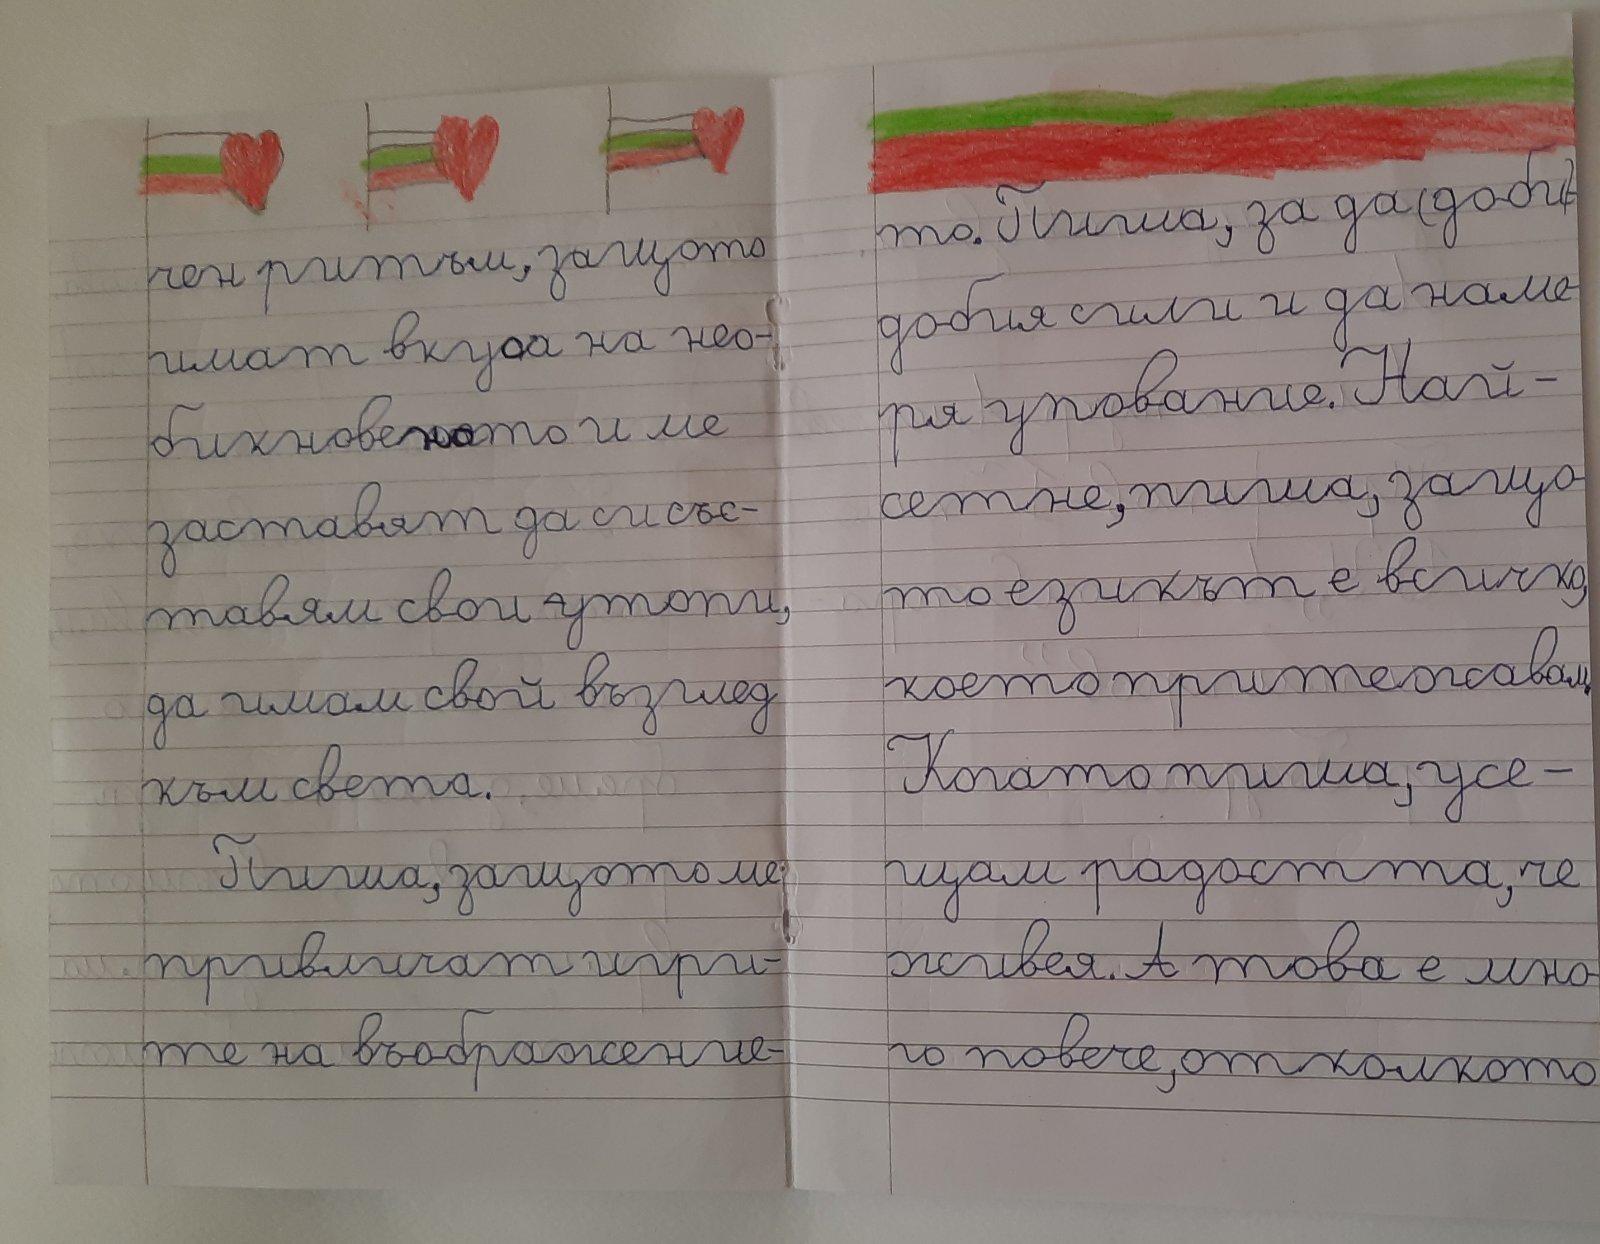 чен ритъм, защото
имат вкуса на нео-
бикновеното и ме
заставят да си със-
тавям свои утопи,
да имам свой възглед
към света.
Пиша, защото ме
привличат игри-
те на въображение-
то. Пиша, за да (доби)
добия сили и да наме
ря упование. Най-
сетне, пиша, защо
то езикът е всичко,
което притежавам.
Когато пиша, усе-
щам радостта, че
живея. А това е мно
го повече, отколкото